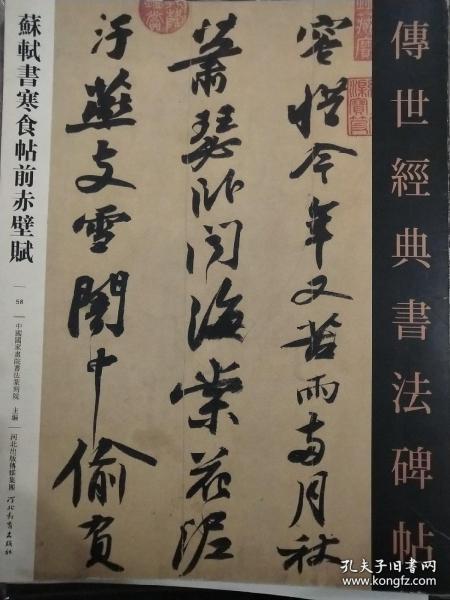 傳世經典書法碑帖
容惜今年又苦雨兩月秋
蕭瑟卧聞海棠花泥
汙燕支雪闇中偷負
蘇軾書寒食帖前赤壁賦
58
中國國家畫院書法篆刻院 主編
河北出版傳媒集團
河北教育出版社
孔夫子旧书网
www.kongfz.com